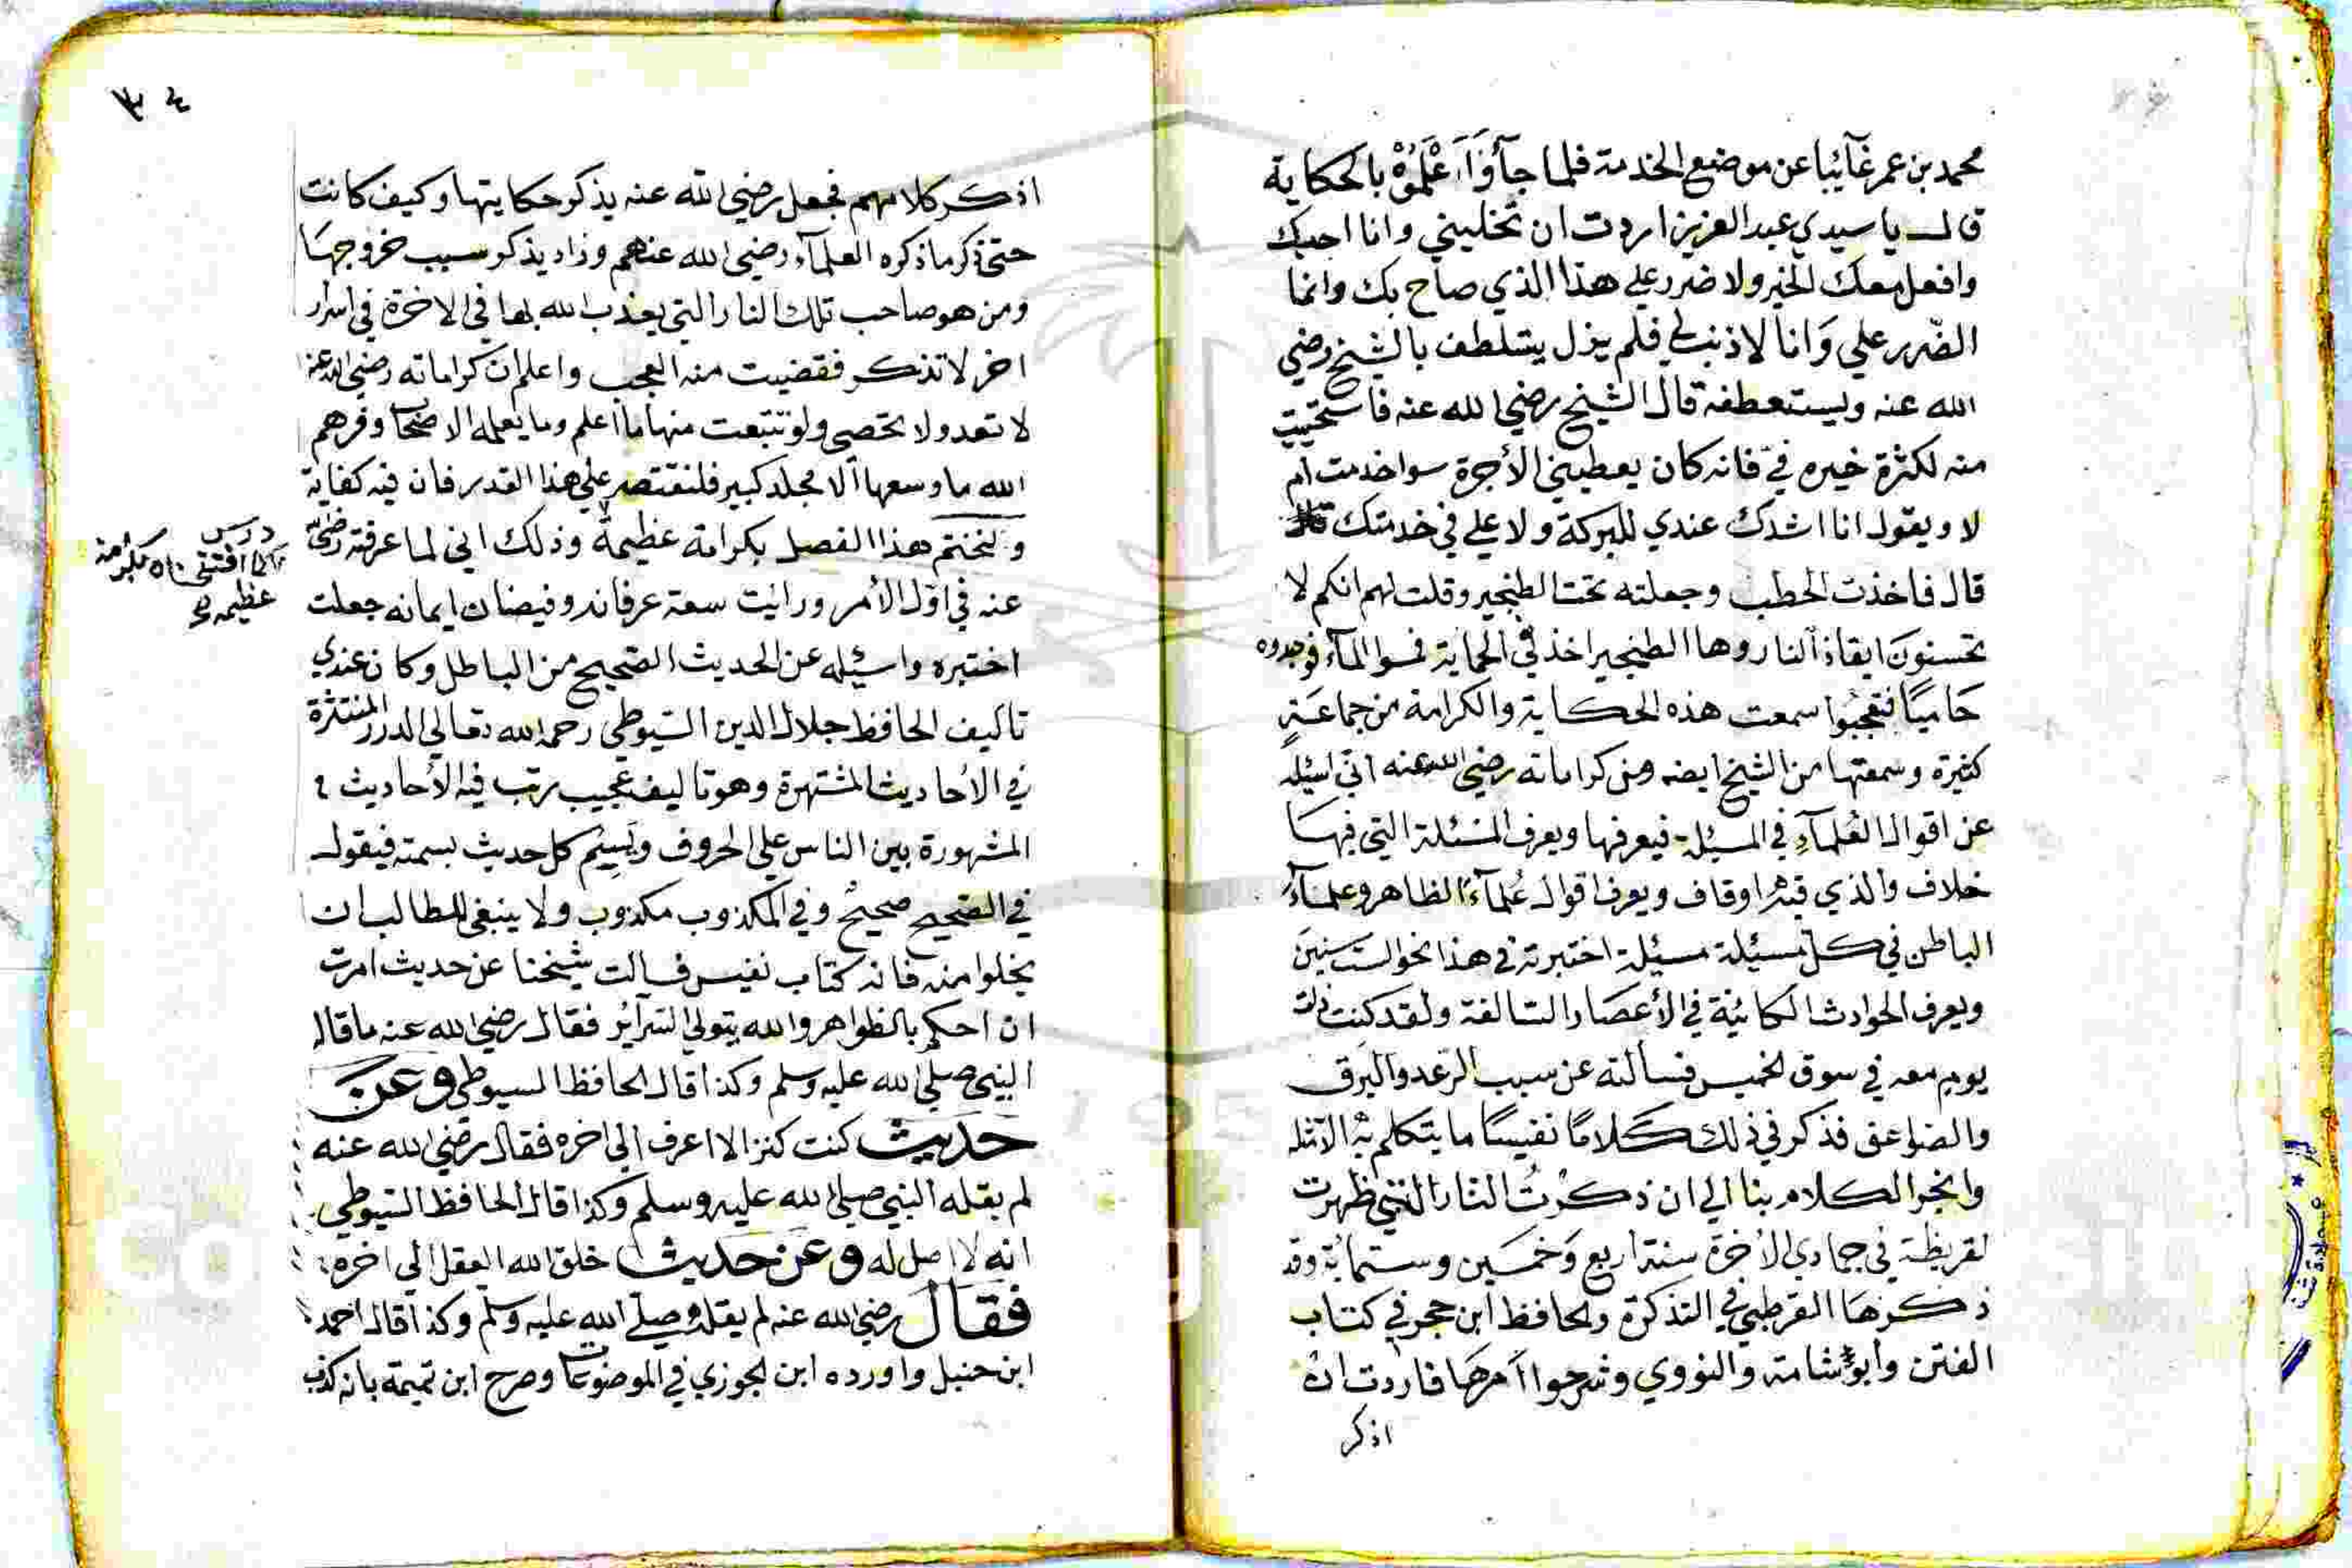 محمد بن عمر غآئبا عن موضع الخدمة فلما جآؤا اَعْلَمُوْهُ بالحكاية
قال يا سيدي عبد العزيز اردت ان تخليني وانا احبك
وافعل معك الخير ولا ضرر على هذا الذي صاح بك وانما
الضّرر علي وَانا لا ذنب لي فلم يزل يتلطف بالشيخ رضي
الله عنه ويستعطفه قال الشيخ رضي الله عنه فاستحييت
منه لكثرة خيره فيّ فانه كان يعطيني الأجرة سوا خدمت ام
لا ويقول انا اشدك عندي للبركة ولا علي في خدمتك
قال فاخذت الحطب وجعلته تحت الطنجير وقلت لهم انكم لا
تحسنونَ ايقاد النار وها الطنجير اخذ في الحماية فمسوا المآء فوجدوه
حَاميًا فتعجّبُوا سمعت هذه الحكاية والكرامة من جماعَةٍ
كثيرة وسمعتها من الشيخ ايضه ومن كراماته رضي الله عنه اني اسئله
عن اقوال العُلمآءِ في المسئلة فيعرفها ويعرف المسئلة التي فيهَا
خلاف والذي فيها وفاف ويعرف اقوال عُلمآء الظاهر وعلمآءَ
الباطن في كل مسئيلة مسئيلة اختبرته في هذا نحو الست سنينَ
ويعرف الحوادث الكائنة في الأعصَار السّالفة ولقد كنت ذات
يوم معه في سوق الخميس فسألته عن سبب الرّعد والبرق
والصّواعق فذكر في ذلك كَلامًا نفيسًا ما يتكلم به الا مثله
وانجر الكلام بنا الي ان ذكرْتُ النار التي ظهرت
لقريظة في جمادي الأخرة سنة اربع وَخمسَين وستمائة وقد
ذكرهَا القرطبي في التذكرة والحافظ ابن حجر في كتاب
الفتن وأبو شامة والنووي وشرحوا اَمرهَا فاردت ان
اذكر
٣٤
اذكر كلامهم فجعل رضي الله عنه يذكر حكايتها وكيف كانت
حتى ذكر ما ذكره العلمآء رضي الله عنهم وزاد يذكر سبب خروجهَا
ومن هو صاحب تلك النار التي يعذب الله بها في الاخرة في اسرار
اخر لا تذكر فقضيت منه العجب واعلم ان كراماته رضي الله عنه
لا تعد ولا تحصي ولو تتبعت منها ما اعلم وما يعلمه الاصحاب وفرهم
الله ما وسعها الا مجلد كبير فلنقتصر على هذا القدر فان فيه كفاية
ولنختم هذا الفصل بكرامة عظيمةٌ وذلك اني لما عرفته رضي
عنه في اوّل الأمر ورائيت سعة عرفانه وفيضان ايمانه جعلت
اختبره واسئيله عن الحديث الصّحيح من الباطل وكان عندي
تأليف الحافظ جلال الدين السّيوطي رحمه الله تعالي الدرر المنتثرة
في الأحاديث المشتهرة وهو تاليف عجيب رتب فيه الأحاديث
المشهورة بين الناس علي الحروف ويَسِمُ كل حديث بسمته فيقول
في الصّحيح صحيحٌ وفي المكذوب مكذوب ولا ينبغي للطالب ان
يخلوا منه فانه كتاب نفيس فسالت شيخنا عن حديث امرت
ان احكم بالظواهر والله يتولي السّرآئر فقال رضي الله عنه ما قاله
النبي صلي الله عليه وسلم وكذا قال الحافظ السيوطي وعن
حديث كنت كنزا لا اعرف الي اخره فقال رضي الله عنه
لم يقله النبي صلي الله عليه وسلم وكذا قال الحافظ السّيوطي
انه لا اصل له وعن حديث خلق الله العقل الي اخره
فقال رضي الله عنه لم يقله صلّي الله عليه وسلّم وكذا قال احمد
ابن حنبل واورده ابن الجوزي في الموضوعات وصرح ابن تميمة بانه كذب
درس
عظيمه